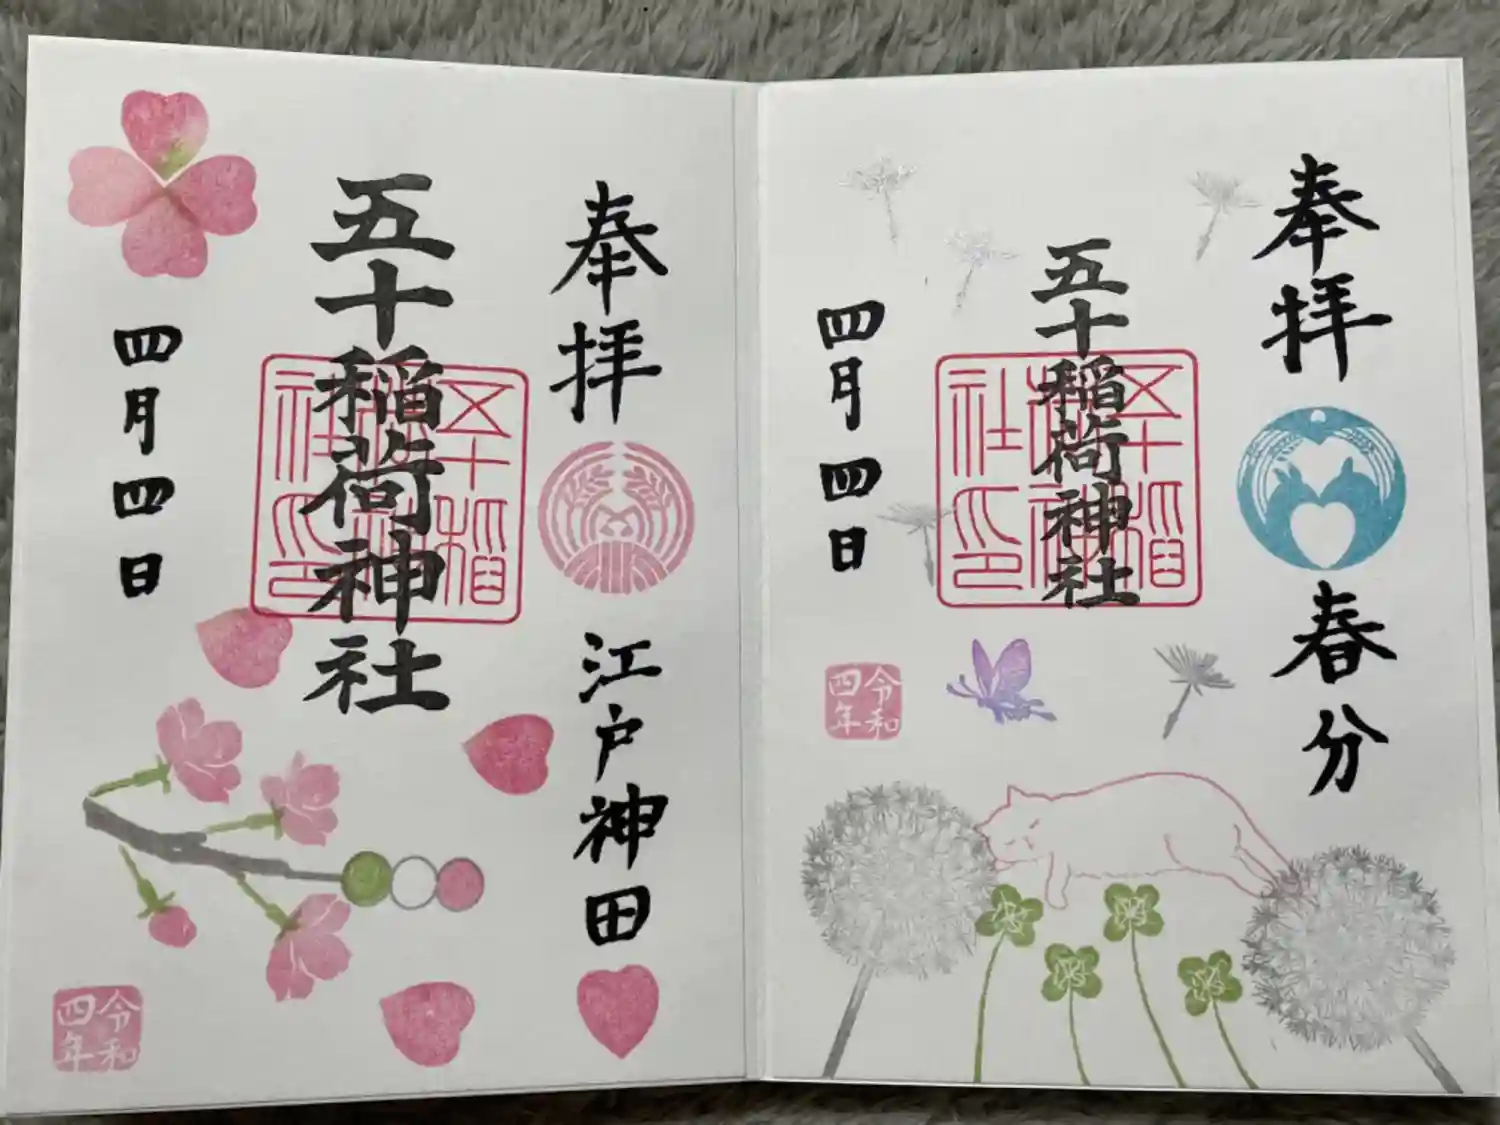 奉拝
江戸神田
五十稲荷神社
五十稲荷神社印
四月四日
令和四年
奉拝
春分
五十稲荷神社
五十稲荷神社印
四月四日
令和四年